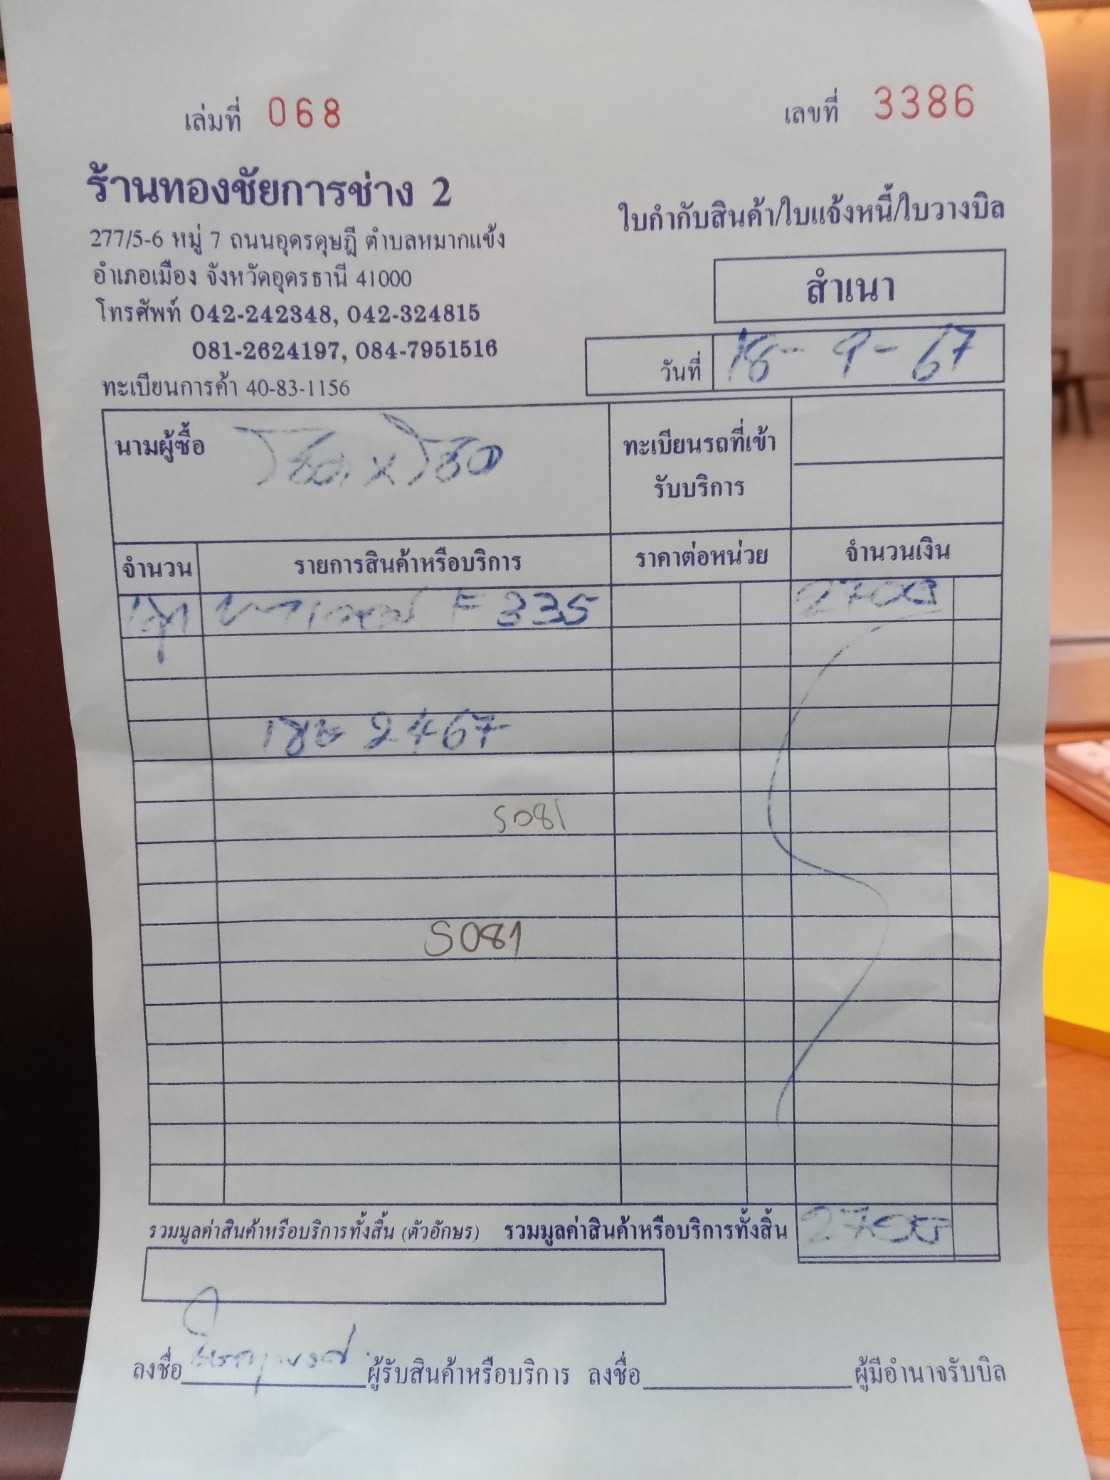 เล่มที่ 068
เลขที่ 3386
ร้านทองชัยการช่าง 2
277/5-6 หมู่ 7 ถนนอุดรดุษฎี ตำบลหมากแข้ง
อำเภอเมือง จังหวัดอุดรธานี 41000
โทรศัพท์ 042-242348, 042-324815
081-2624197, 084-7951516
ทะเบียนการค้า 40-83-1156
ใบกำกับสินค้า/ใบแจ้งหนี้/ใบวางบิล
สำเนา
วันที่ 18-9-67
นามผู้ซื้อ
ทะเบียนรถที่เข้า
รับบริการ
จำนวน รายการสินค้าหรือบริการ ราคาต่อหน่วย จำนวนเงิน
F 335 2700
2467
S081
S081
รวมมูลค่าสินค้าหรือบริการทั้งสิ้น (ตัวอักษร) รวมมูลค่าสินค้าหรือบริการทั้งสิ้น 2700
ลงชื่อ ผู้รับสินค้าหรือบริการ ลงชื่อ ผู้มีอำนาจรับบิล